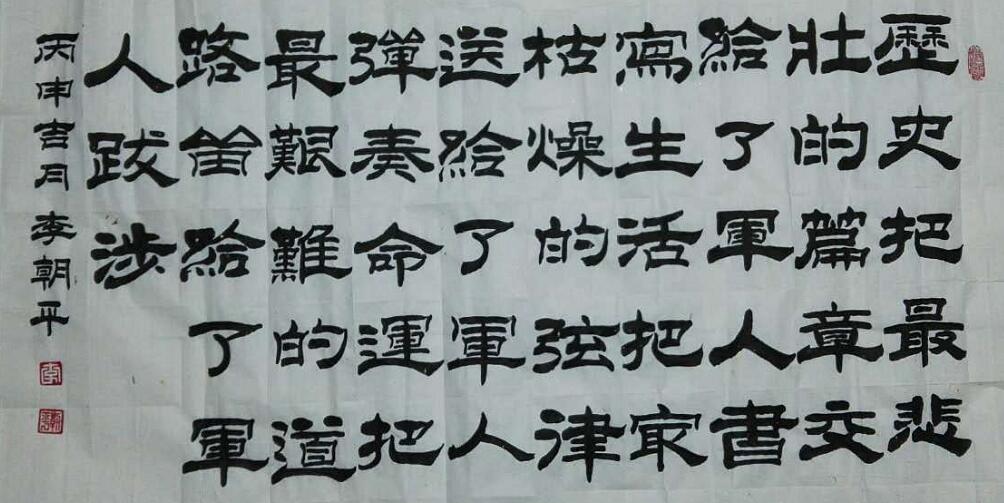 歷史把最悲
壯的篇章交
給了軍人書
寫生活把冣
枯燥的弦律
送給了軍人
彈奏命運把
最艱難的道
路留給了軍
人跋涉
丙申吉月李朝平